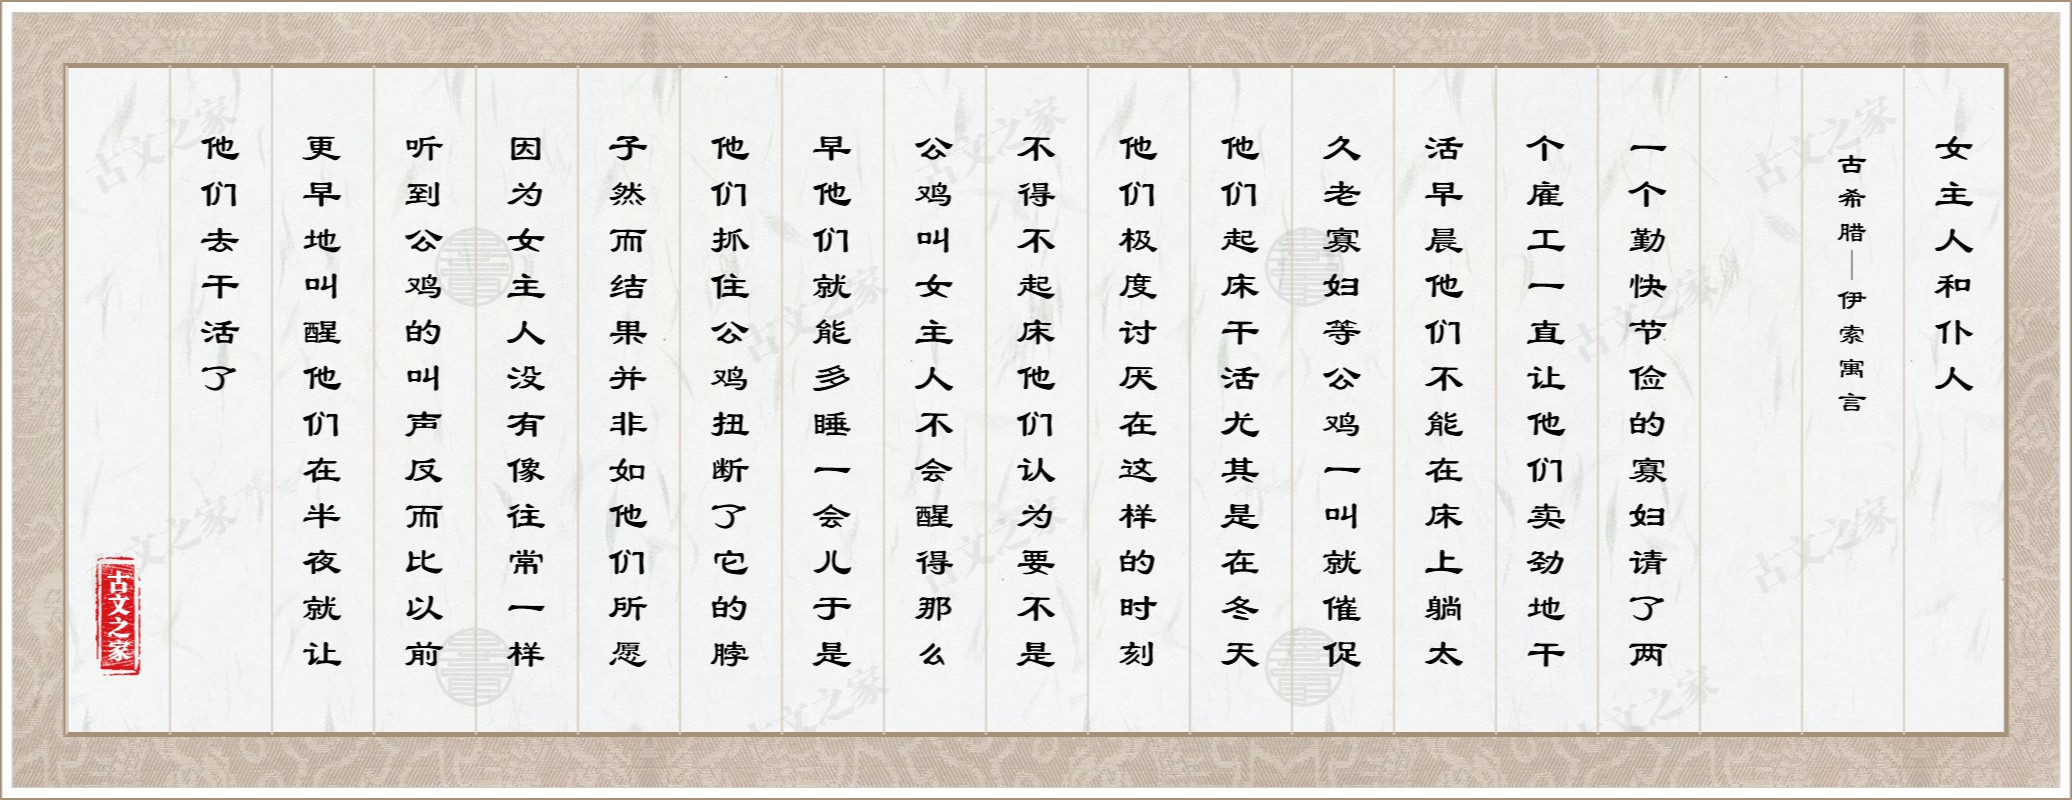 女主人和仆人
古希腊—伊索寓言
一个勤快节俭的寡妇请了两
个雇工一直让他们卖劲地干
活早晨他们不能在床上躺太
久老寡妇等公鸡一叫就催促
他们起床干活尤其是在冬天
他们极度讨厌在这样的时刻
不得不起床他们认为要不是
公鸡叫女主人不会醒得那么
早他们就能多睡一会儿于是
他们抓住公鸡扭断了它的脖
子然而结果并非如他们所愿
因为女主人没有像往常一样
听到公鸡的叫声反而比以前
更早地叫醒他们在半夜就让
他们去干活了
古文之家